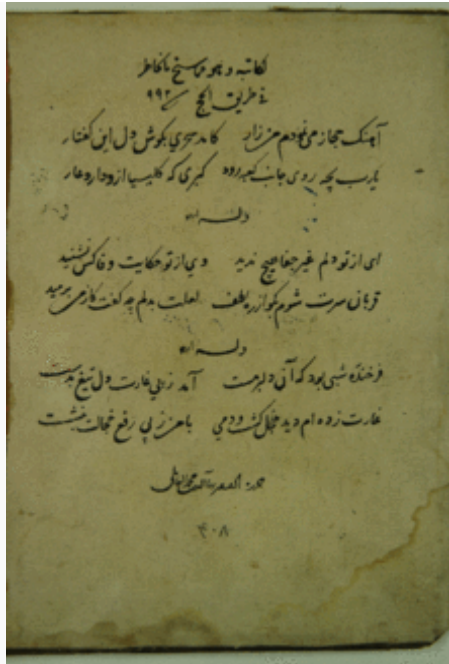 لکاتبه و هو ما سنح بالخاطر
فی طریق الحج ۹۹۲
آهنک حجاز می نمودم من زار کامد سحری بکوش دل این کفتار
یارب بچه روی جانب کعبه رود کبری که کلیسا ازو دارد عار
وله
ای از تو دلم غیر جفا هیچ ندید وی از تو حکایت وفا کس نشنید
قربان سرت شوم بکو از ره لطف لعلت بدلم چه کفت کز من برمید
وله
فرخنده شبی بود که آن دلبر مست آمد ز پی غارت دل تیغ بدست
غارت زده ام دید خجل کشت و دمی با من ز پی رفع خجالت بنشست
۴۰۸